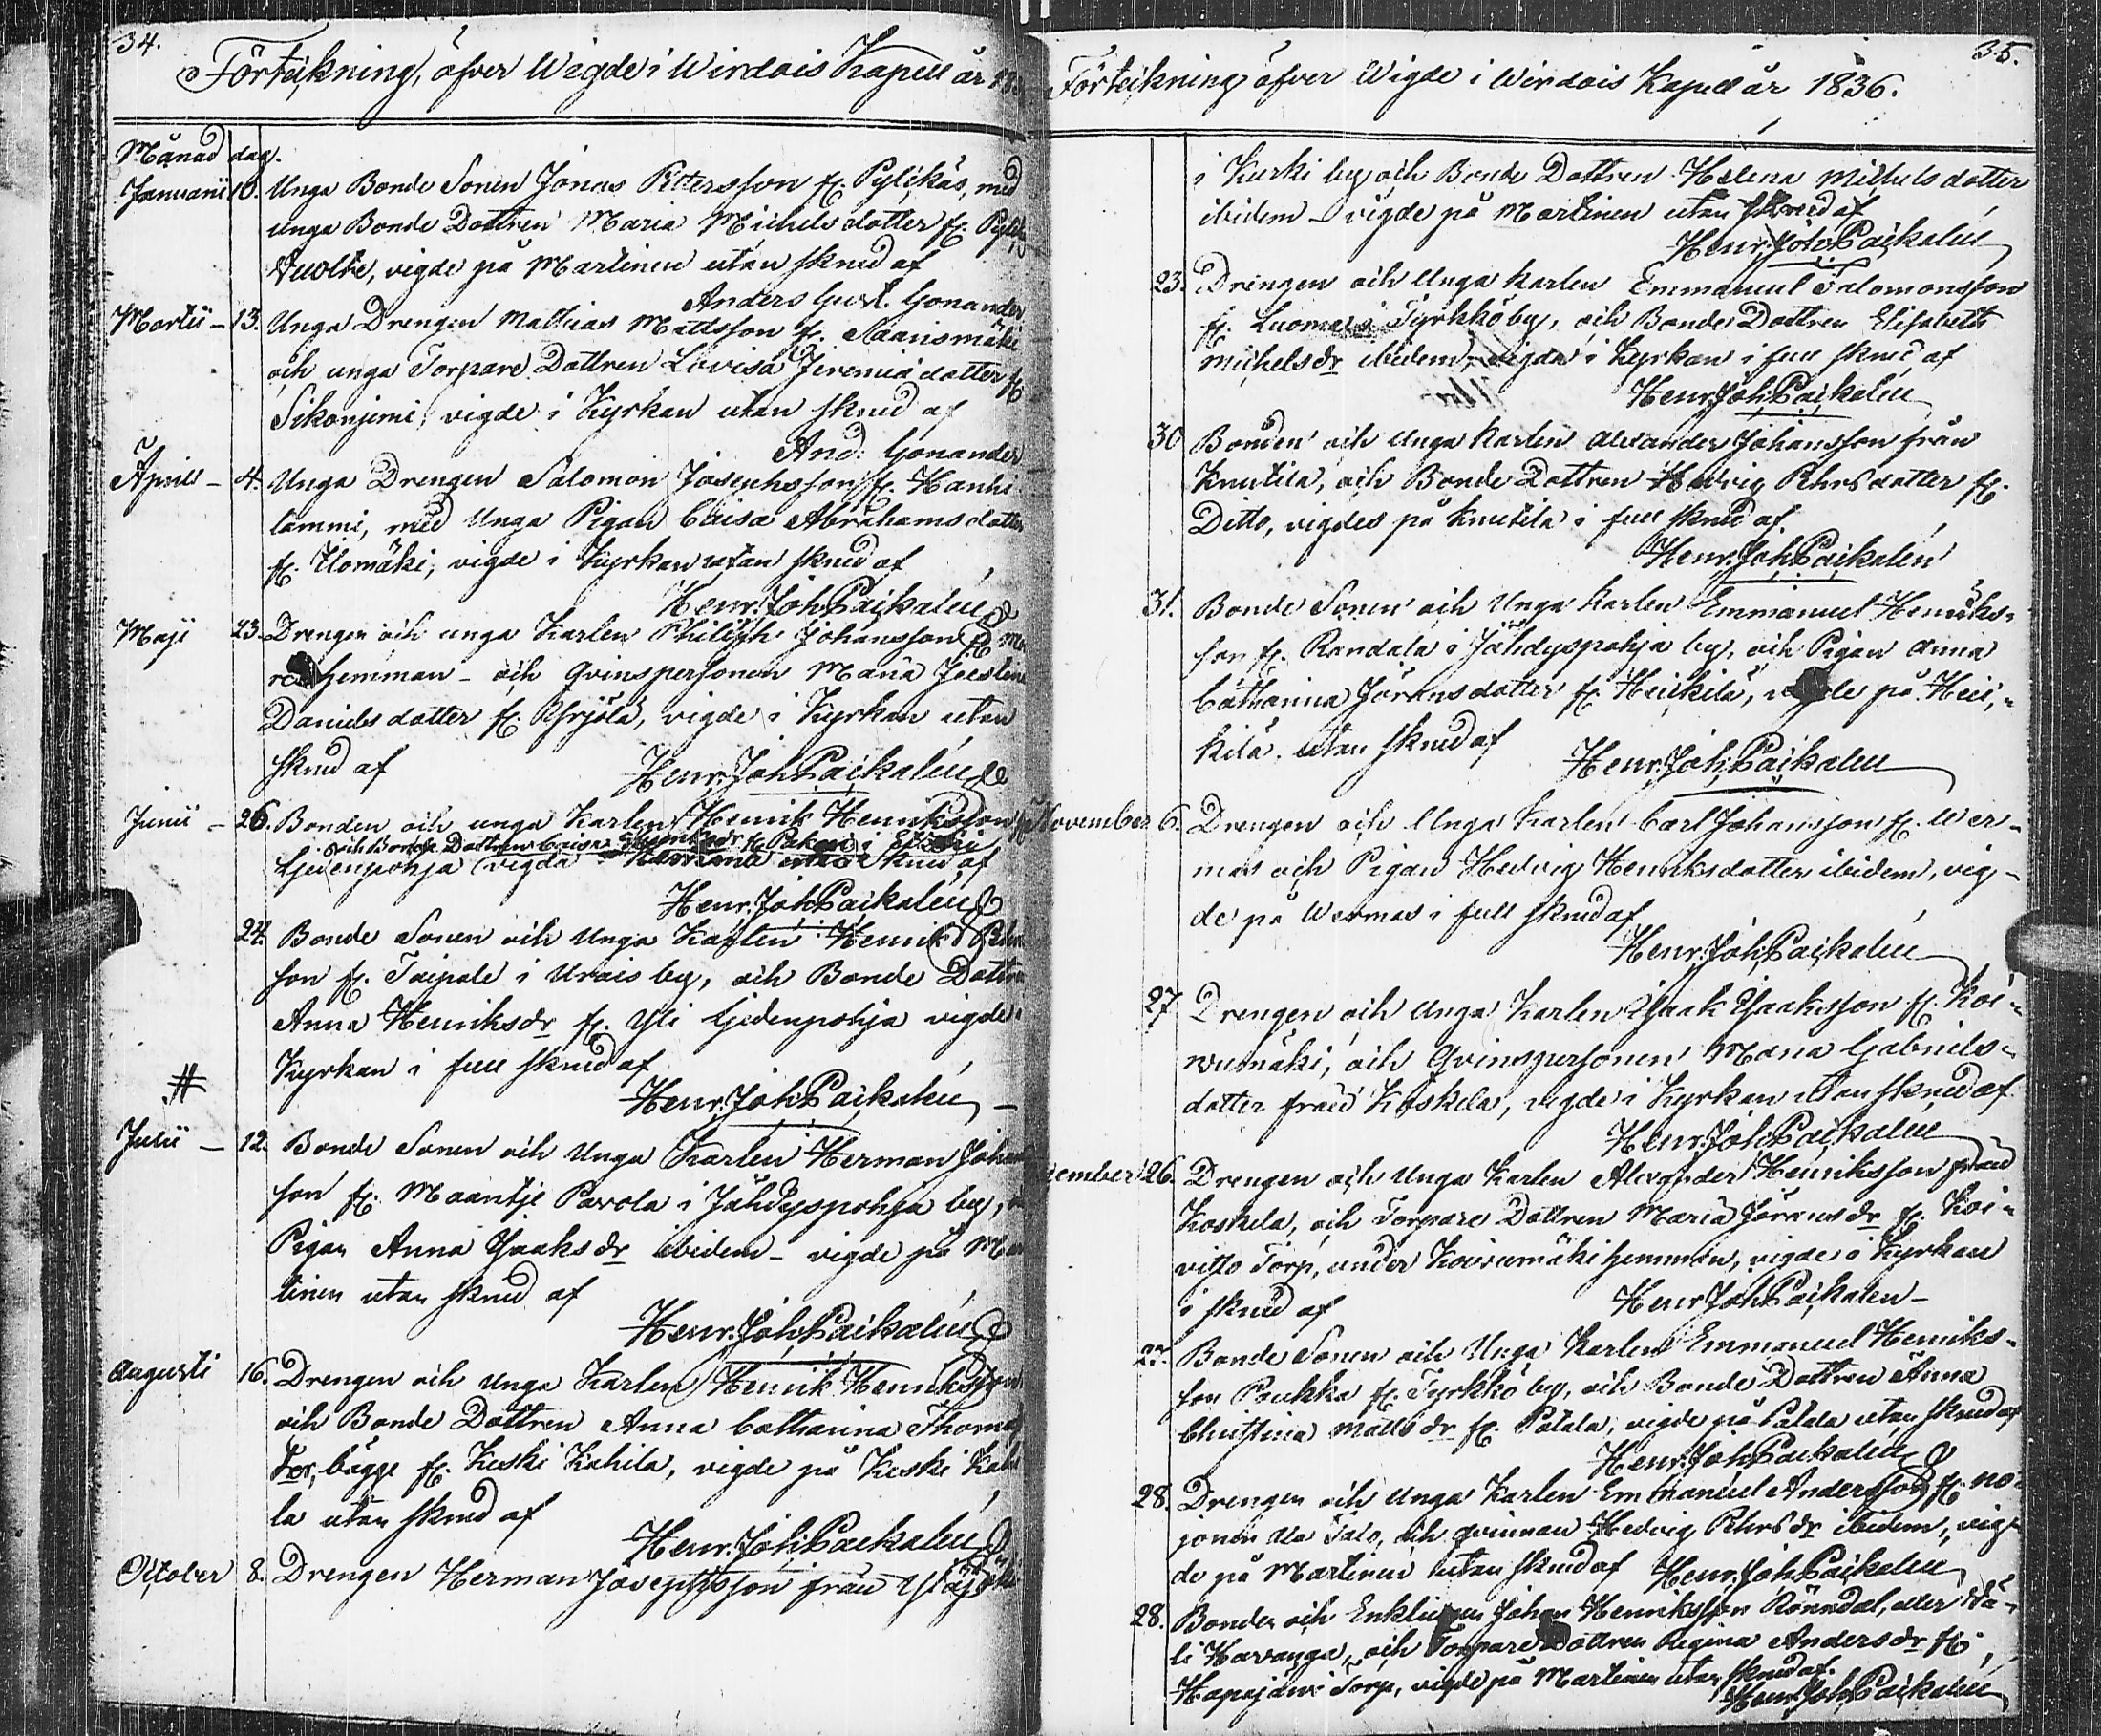 34.
Förtekning, öfver Wigde i Wirdois Kapell år 183
Månad dag.
Januarii 10. Unga Bonde Sonen Jonas Pettersson fr. Pylikäs, med
unga Bonde Dottren Maria Michelsdotter fr.
vigde på Martinen utan skrud af
Anders Gust. Gonander
Martii – 13. Unga Drengen Mathias Mattsson fr.
och unga Torpare Dottren Lovisa Jeremiædotter fr
vigde i Kyrkan utan skrud af
And: Gonander
Aprils – 4. Unga Drengen Salomon Josephsson fr. Hanhi
lammi, med Unga Pigan Caisa Abrahamsdotter
fr. Ulomäki, vigde i Kyrkan utan skrud af
Henr. Joh. Paikalén
Maji 23. Drengen och unga Karlen Philiph Johansson fr
hemman – och Qvinspersonen Maria
Danielsdotter fr. Yhrjölä, vigde i Kyrkan utan
skrud af
Henr. Joh. Paikalén
Junii – 26. Bonden och unga Karlen Henrik Henriksson
och Bonde Dottren Caisa fr. Pakari i
Liedenpohja vigda utan skrud af
Henr. Joh. Paikalén
24. Bonde Sonen och Unga Karlen Henrik
son fr. Taipale i Urais by, och Bonde Dottren
Anna Henriksdr fr. Yli Liedenpohja vigde i
Kyrkan i full skrud af
Henr. Joh. Paikalén
#
Julii – 12. Bonde Sonen och Unga Karlen Herman Johan
son fr. Maantje Pavola i Jähdyspohja by, o
Pigan Anna Isaaksdr ibidem – vigde på Mar
tinen utan skrud af
Henr. Joh. Paikalén
Augusti 16. Drengen och unga Karlen Henrik Henriksson
och Bonde Dottren Anna Catharina Thomas
bägge fr. Keski Kahila, vigde på Keski Kahi
la utan skrud af
Henr. Joh. Paikalén
October 8. Drengen Herman Josephsson från
35.
Förtekning öfver Wigde i Wirdois Kapell år 1836.
i Kurki by och Bonde Dottren Helena Michelsdotter
ibidem – vigde på Martinen utan skrud af
Henr. Joh. Paikalén
23. Drengen och Unga Karlen Emmanuel Salomonsson
fr. Luoma i Tyrkkö by, och Bonde Dottren Elisabeth
Michelsdr ibidem, vigda i Kyrkan i full skrud af
Henr. Joh. Paikalén
30 Bonden och Unga Karlen Alexander Johansson från
Knutila, och Bonde Dottren Hedvig Pehrsdotter fr.
Ditto, vigdes på Knutila i full skrud af
Henr. Joh. Paikalén
31. Bonde Sonen och Unga Karlen Emmanuel Henriks-
son fr. Randala i Jähdyspohja by, och Pigan Anna
Catharina Jöransdotter fr. Heickilä, vigde på Heic-
kilä utan skrud af
Henr. Joh. Paikalén
November 6. Drengen och Unga Karlen Carl Johansson fr. Wer-
mas och Pigan Hedvig Henriksdotter ibidem, vig-
de på Wermas i full skrud af
Henr. Joh. Paikalén
27 Drengen och Unga Karlen Isaak Isaaksson fr. Koi-
wumäki, och Qvinspersonen Maria Gabriels-
dotter från Koskela, vigde i Kyrkan utan skrud af
Henr. Joh. Paikalén
cember 26. Drengen och Unga Karlen Alexander Henriksson från
Koskela, och Torpare Dottren Maria Jöransdr fr. Koi-
visto Torp, under Koivumäki hemman, vigde i Kyrkan
i skrud af
Henr Joh Paikalen
27. Bonde Sonen och Unga Karlen Emmanuel Henriks-
son Poukka fr. Tyrkkö by, och Bonde Dottren Anna
Christina Mattsdr fr. Patala, vigde på Patala utan skrud af
Henr. Joh. Paikalen
28. Drengen och Unga Karlen Emmanuel Andersson fr. No-
jonen Ala Talo, och qvinnan Hedvig Pehrsdr ibidem, vig-
de på Martinen utan skrud af Henr. Joh. Paikalen
28. Bonden och Enklingen Johan Henriksson Rönndal, eller
Havanga, och Torpare Dottren Regina Andersdr fr.
Hapajärvi Torp, vigde på Martinen utan skrud af.
Henr. Joh. Paikalén